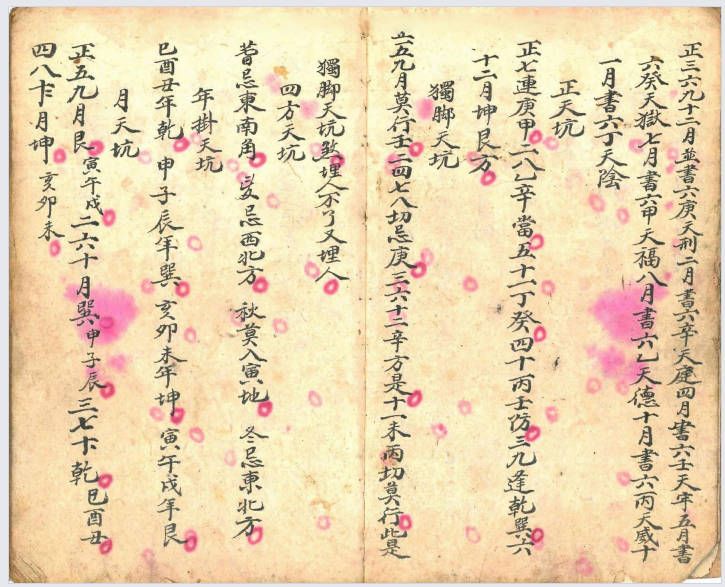 正三六九十二月並書六庚天刑二月書六辛天庭四月書六壬天牢五月書
六癸天獄七月書六甲天福八月書六乙天德十月書六丙天威十
一月書六丁天陰
正天坑
正七連庚甲二八乙辛當五十一丁癸四十丙壬仿三九逢乾巽六
十二月坤艮方
獨脚天坑
六五九月莫行壬二四七八切忌庚三六十二辛方是十一未丙切莫行此是
獨脚天坑煞埋人不了又埋人
四方天坑
春忌東南角 夏忌西北方 秋莫入寅地 冬忌東北方
年掛天坑
巳酉丑年乾 申子辰年巽 亥卯未年坤 寅午戌年艮
月天坑
正五九月艮寅午戌二六十月巽申子辰三七十乾巳酉丑
四八十月坤亥卯未